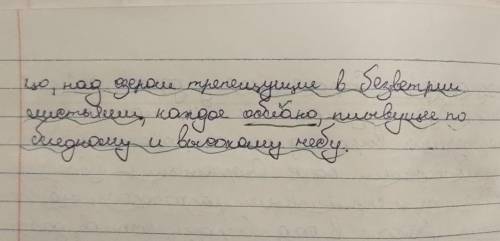 цо, над озером трепещущие в безветрии
листьями, каждое облако, плывущее по
бледному и высокому небу.